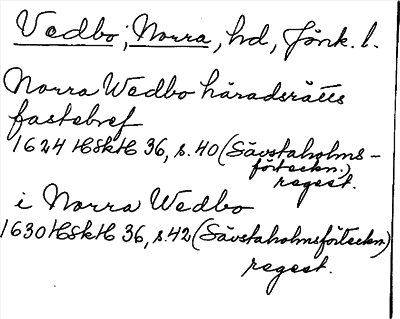 Vedbo, Norra, hd, Jönk. l.
Norra Wedbo häradsrätts
fastebref
1624 HSkH 36, s. 40 (Säfstaholms-
förteckn.)
regest.
i Norra Wedbo
1630 HSkH 36, s. 42 (Säfstaholmsförteckn.)
regest.